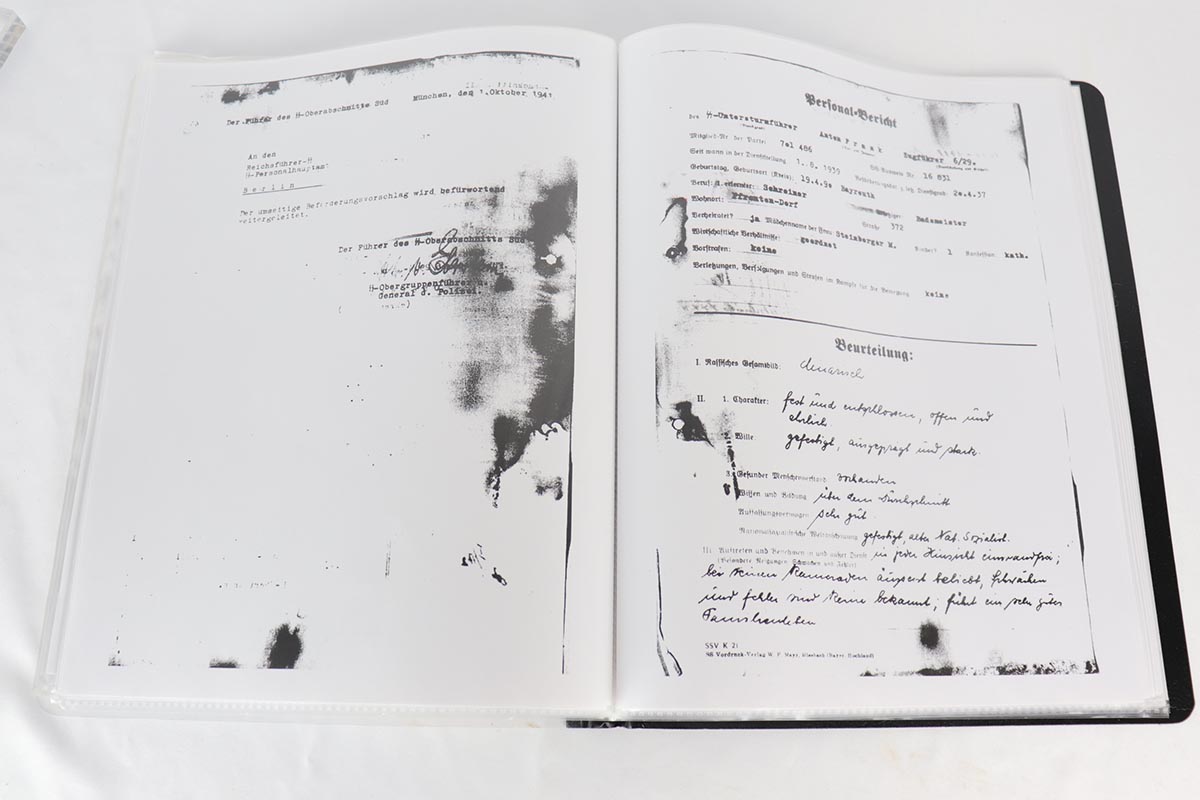 Der Führer des SS-Oberabschnitts Süd
München, den 1.Oktober 1941
An den
Reichsführer-SS
SS-Personalhauptamt
Berlin
Der umseitige Beförderungsvorschlag wird befürwortend
weitergeleitet.
Der Führer des SS-Oberabschnitts Süd
SS-Obergruppenführer u.
General d. Polizei.
Personal-Bericht
des SS-Untersturmführer Anton Frank Zugführer 6/29.
Mitglied-Nr. der Partei 701 486 SS-Ausweis Nr. 16 831
Seit wann in der Dienststellung 1.8.1939 Beförderungsdatum z. letz. Dienstgrad: 20.4.37
Geburtstag, Geburtsort (Kreis): 19.4.90 Bayreuth
Beruf: 1. erlernter: Schreiner Bademeister
Wohnort: Pfronten-Dorf Straße 372
Verheiratet? ja Mädchenname der Frau Steinberger M. Kinder? 1 Konfession kath.
Wirtschaftliche Verhältnisse: geordnet
Vorstrafen: keine
Verletzungen, Verfolgungen und Strafen im Kampfe für die Bewegung keine
Beurteilung:
I. Rassisches Gesamtbild: dinarisch
II. 1. Charakter: fest und entschlossen, offen und
ehrlich.
2. Wille gefestigt, ausgeprägt und stark.
3. Gesunder Menschenverstand vorhanden
Wissen und Bildung über dem Durchschnitt
Auffassungsvermögen sehr gut.
Nationalsozialistische Weltanschauung gefestigt, alter Nat. Sozialist.
III. Auftreten und Benehmen in und außer Dienst in jeder Hinsicht einwandfrei;
(Besondere Neigungen, Schwächen und Fehler)
bei seinen Kameraden äuserst beliebt, Schwächen
und Fehler sind keine bekannt; führt ein sehr gutes
Familienleben
SSV K 21
SS Vordruck-Verlag W. F. Mayr, Miesbach (Bayer. Hochland)